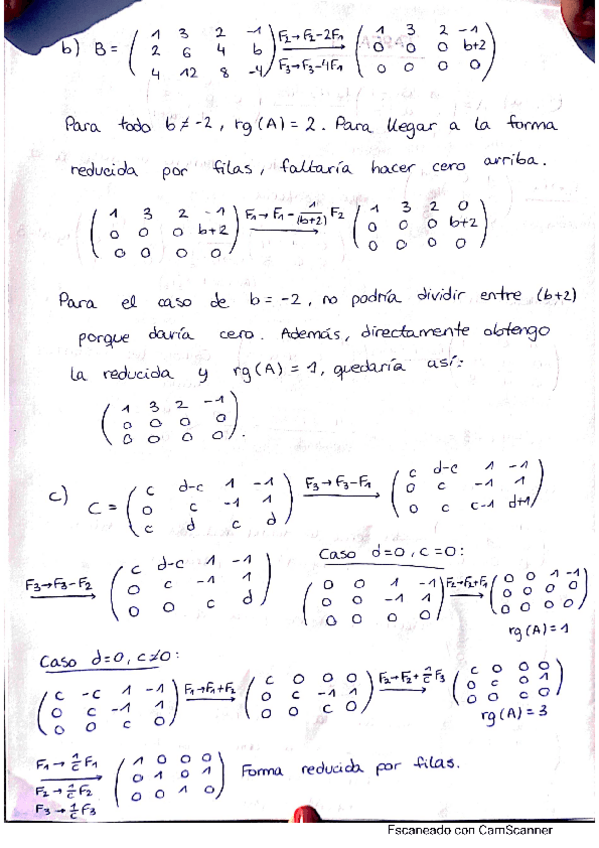 b) B = ( 1 3 2 -1 ; 2 6 4 b ; 4 12 8 -4 ) F2→F2-2F1 F3→F3-4F1 ( 1 3 2 -1 ; 0 0 0 b+2 ; 0 0 0 0 )
Para todo b ≠ -2, rg(A) = 2. Para llegar a la forma
reducida por filas, faltaría hacer cero arriba.
( 1 3 2 -1 ; 0 0 0 b+2 ; 0 0 0 0 ) F1→F1 - 1/(b+2) F2 ( 1 3 2 0 ; 0 0 0 b+2 ; 0 0 0 0 )
Para el caso de b = -2, no podría dividir entre (b+2)
porque daría cero. Además, directamente obtengo
la reducida y rg(A) = 1, quedaría así:
( 1 3 2 -1 ; 0 0 0 0 ; 0 0 0 0 ).
c) C = ( c d-c 1 -1 ; 0 c -1 1 ; c d c d ) F3→F3-F1 ( c d-c 1 -1 ; 0 c -1 1 ; 0 c c-1 d+1 )
F3→F3-F2 ( c d-c 1 -1 ; 0 c -1 1 ; 0 0 c d )
Caso d=0, c=0:
( 0 0 1 -1 ; 0 0 -1 1 ; 0 0 0 0 ) F2→F2+F1 ( 0 0 1 -1 ; 0 0 0 0 ; 0 0 0 0 )
rg(A) = 1
Caso d=0, c≠0:
( c -c 1 -1 ; 0 c -1 1 ; 0 0 c 0 ) F1→F1+F2 ( c 0 0 0 ; 0 c -1 1 ; 0 0 c 0 ) F2→F2+1/c F3 ( c 0 0 0 ; 0 c 0 1 ; 0 0 c 0 )
rg(A) = 3
F1→1/c F1 F2→1/c F2 F3→1/c F3 ( 1 0 0 0 ; 0 1 0 1 ; 0 0 1 0 ) Forma reducida por filas.
1
Escaneado con CamScanner